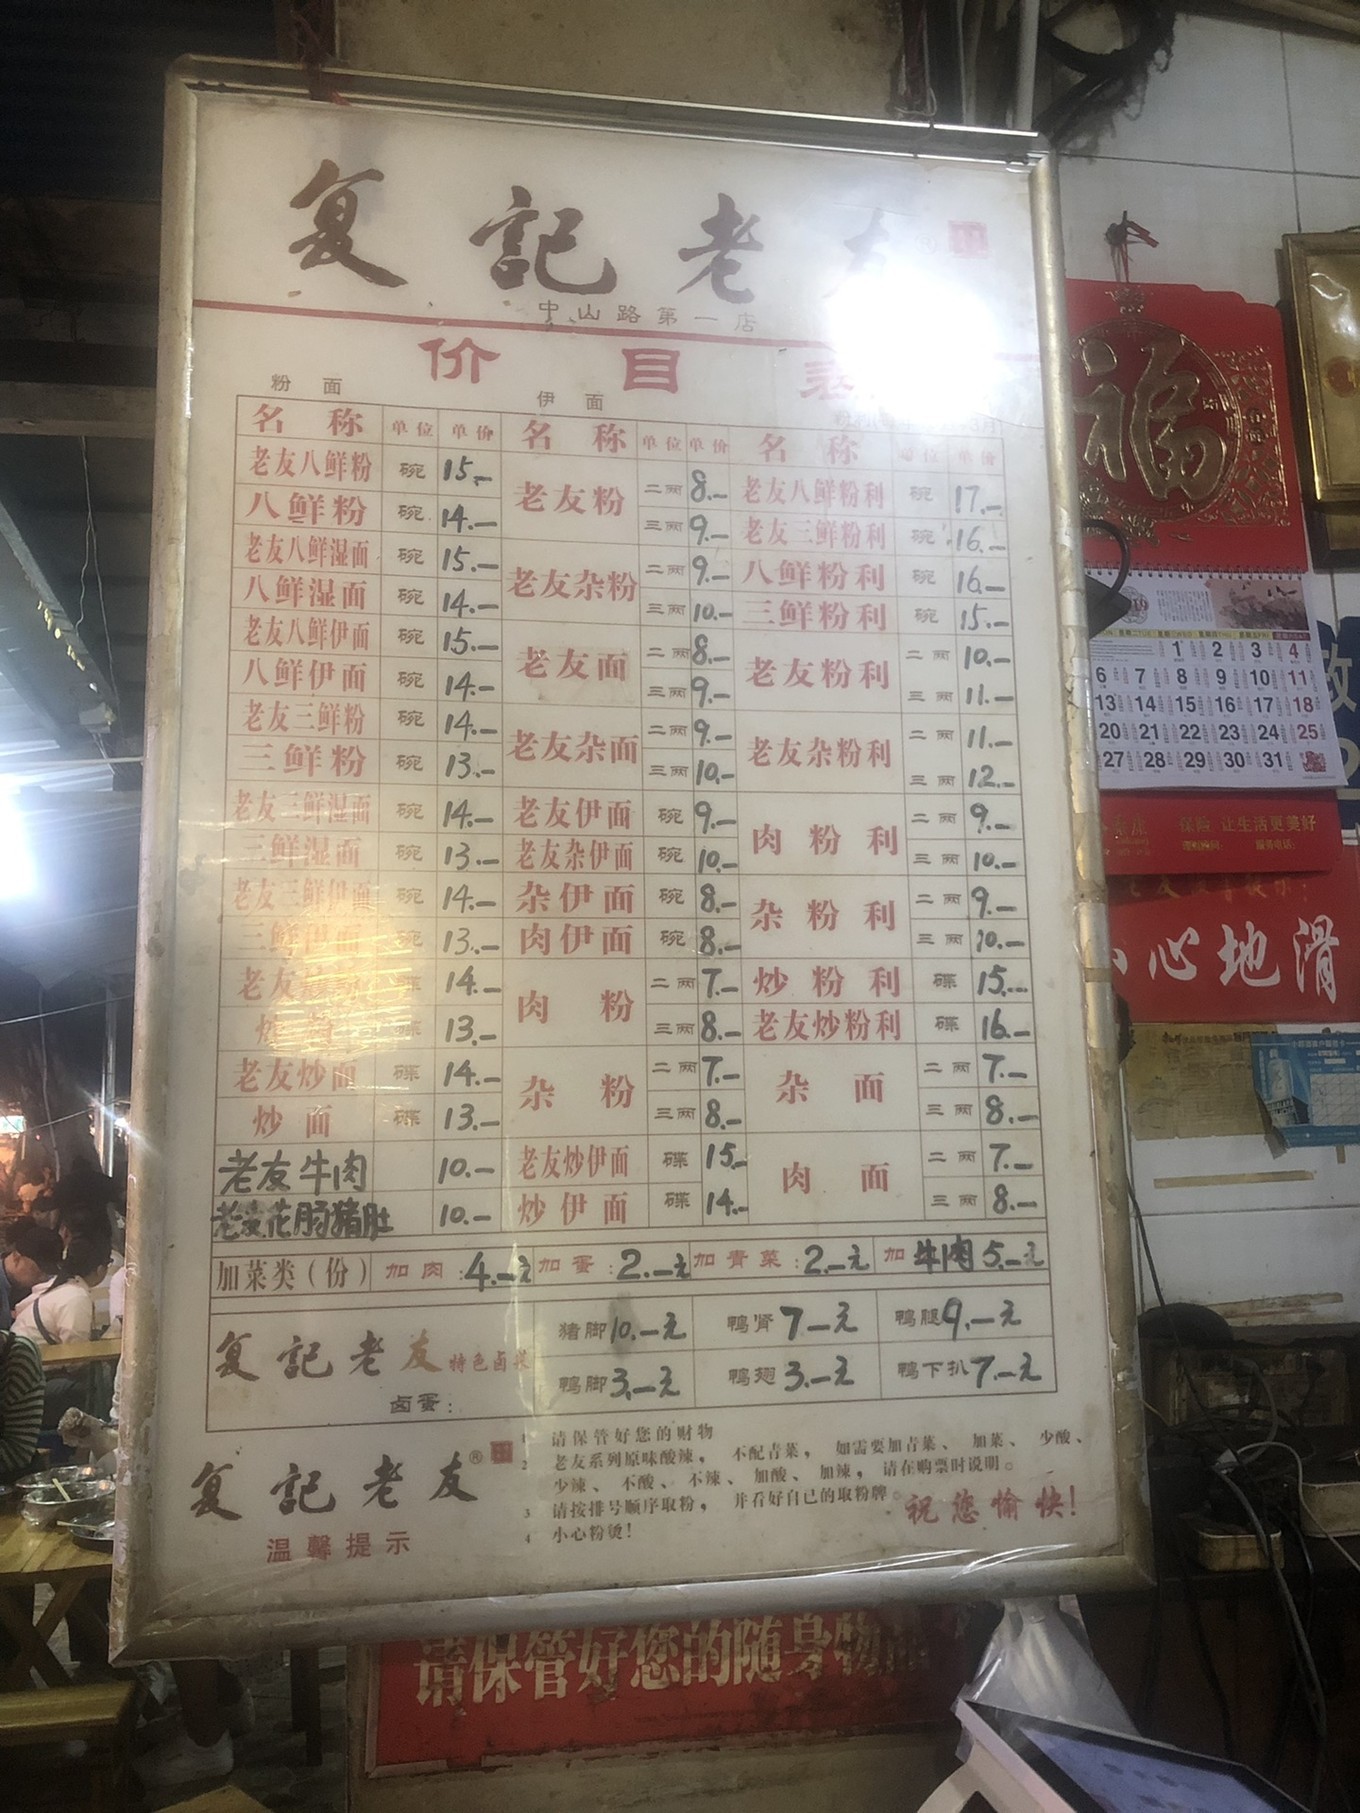 复記老友
中山路第一店
价目表
粉面
伊面
名称 单位 单价 名称 单位 单价 名称 单位 单价
老友八鲜粉 碗 15.-
八鲜粉 碗 14.-
老友八鲜湿面 碗 15.-
八鲜湿面 碗 14.-
老友八鲜伊面 碗 15.-
八鲜伊面 碗 14.-
老友三鲜粉 碗 14.-
三鲜粉 碗 13.-
老友三鲜湿面 碗 14.-
三鲜湿面 碗 13.-
老友三鲜伊面 碗 14.-
三鲜伊面 碗 13.-
老友炒粉 碟 14.-
炒粉 碟 13.-
老友炒面 碟 14.-
炒面 碟 13.-
老友牛肉 10.-
老友花肠猪肚 10.-
老友粉 二两 8.-
三两 9.-
老友杂粉 二两 9.-
三两 10.-
老友面 二两 8.-
三两 9.-
老友杂面 二两 9.-
三两 10.-
老友伊面 碗 9.-
老友杂伊面 碗 10.-
杂伊面 碗 8.-
肉伊面 碗 8.-
肉粉 二两 7.-
三两 8.-
杂粉 二两 7.-
三两 8.-
老友炒伊面 碟 15.-
炒伊面 碟 14.-
老友八鲜粉利 碗 17.-
老友三鲜粉利 碗 16.-
八鲜粉利 碗 16.-
三鲜粉利 碗 15.-
老友粉利 二两 10.-
三两 11.-
老友杂粉利 二两 11.-
三两 12.-
肉粉利 二两 9.-
三两 10.-
杂粉利 二两 9.-
三两 10.-
炒粉利 碟 15.-
老友炒粉利 碟 16.-
杂面 二两 7.-
三两 8.-
肉面 二两 7.-
三两 8.-
加菜类（份） 加肉：4.-元 加蛋：2.-元 加青菜：2.-元 加牛肉5.-元
复記老友特色卤菜
卤蛋：
猪脚10.-元 鸭肾7-元 鸭腿9.-元
鸭脚3.-元 鸭翅3.-元 鸭下扒7.-元
复記老友®
温馨提示
1 请保管好您的财物
2 老友系列原味酸辣，不配青菜，如需要加青菜、加菜、少酸、
少辣、不酸、不辣、加酸、加辣，请在购票时说明。
3 请按排号顺序取粉，并看好自己的取粉牌。
4 小心粉烫！
祝您愉快！
请保管好您的随身物品
福
1 2 3 4
6 7 8 9 10 11
13 14 15 16 17 18
20 21 22 23 24 25
27 28 29 30 31
保险 让生活更美好
小心地滑